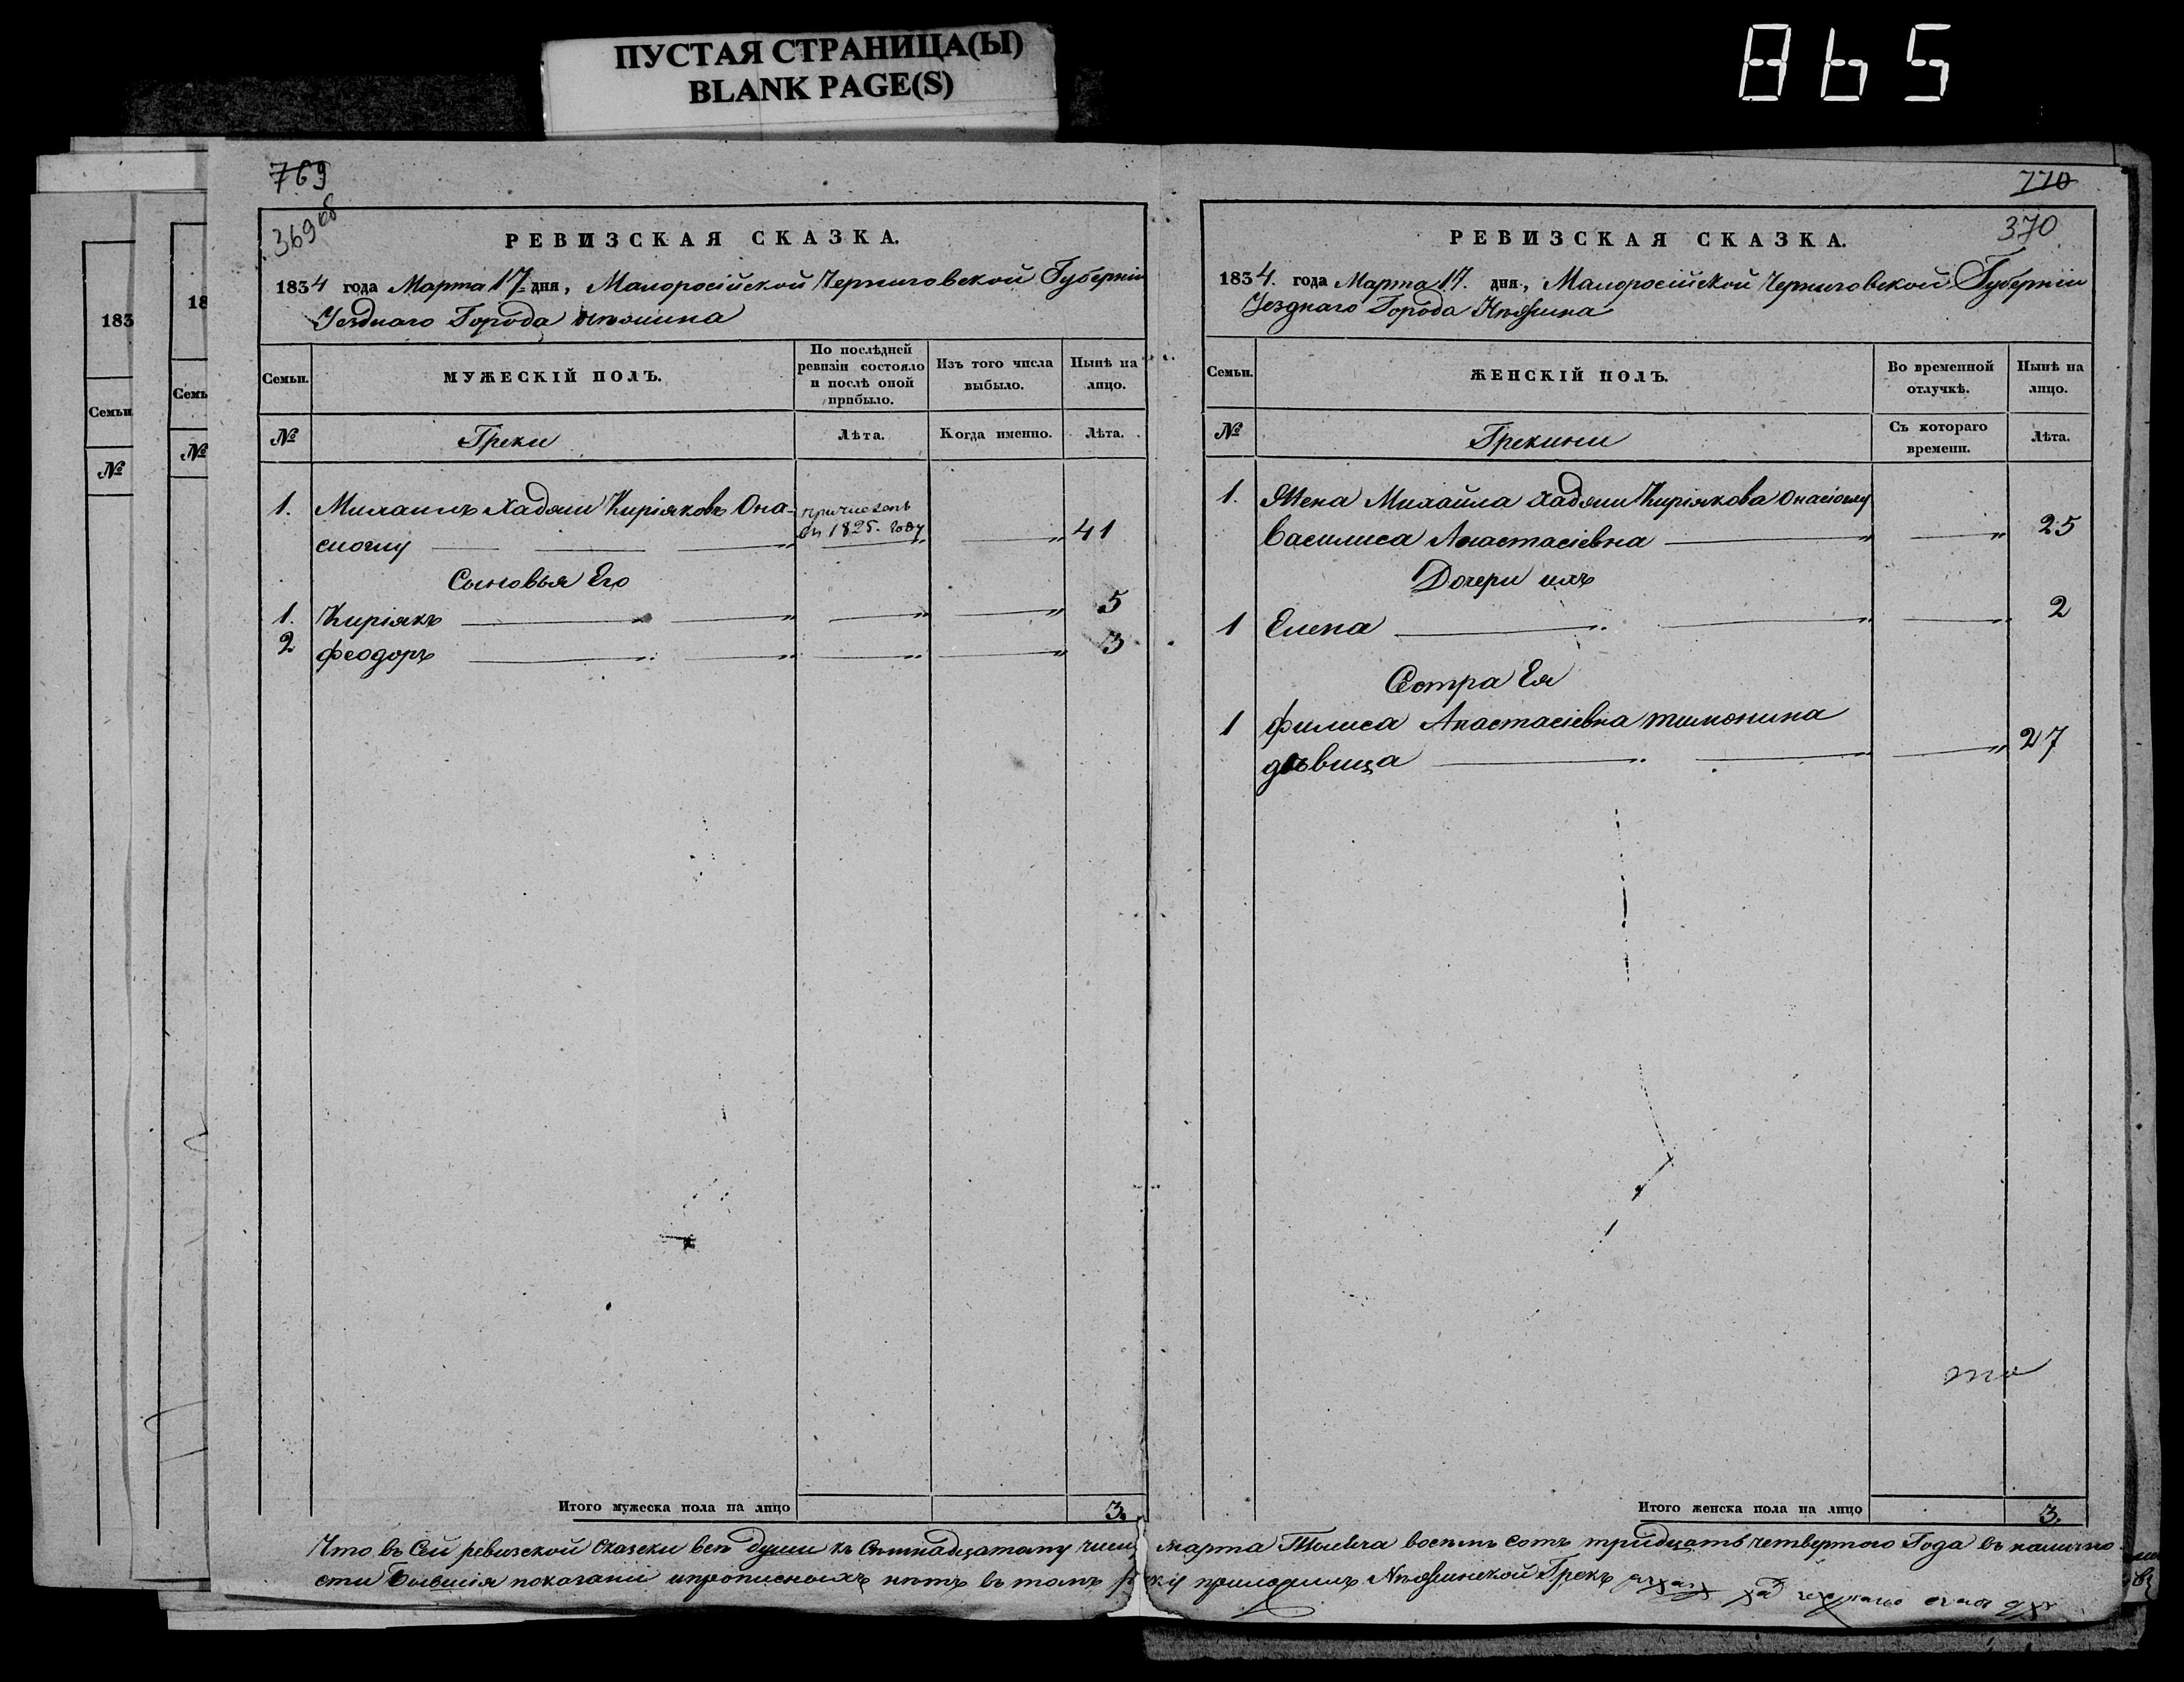 ПУСТАЯ СТРАНИЦА(Ы)
BLANK PAGE(S)
865
183
Семьи
№
18
Семь
№
769
369 об
РЕВИЗСКАЯ СКАЗКА.
1834 года Марта 17 дня, Малоросійской Черниговской Губерніи
Уезднаго Города Нѣжина
Семьи.
МУЖЕСКІЙ ПОЛЪ.
По послѣдней ревизіи состояло и послѣ оной прибыло.
Изъ того числа выбыло.
Нынѣ на лицо.
№
Греки
Лѣта.
Когда именно.
Лѣта.
1. Михаилъ Хаджи Киріяковъ Она- причисленъ
сіоглу въ 1825. году 41
Сыновья Его
1. Киріякъ 5
2 Феодоръ 3
Итого мужеска пола на лицо 3.
770
370
РЕВИЗСКАЯ СКАЗКА.
1834. года Марта 17. дня, Малоросійской Черниговской Губерніи
Уезднаго Города Нѣжина
Семьи.
ЖЕНСКІЙ ПОЛЪ.
Во временной отлучкѣ.
Нынѣ на лицо.
№
Грекини
Съ котораго времени.
Лѣта.
1. Жена Михайла Хаджи Киріякова Онасіоглу
Василиса Анастасіевна 25
Дочери ихъ
1 Елена 2
Сестра Ея
1 Филиса Анастасіевна тимонина
дѣвица 27
Итого женска пола на лицо 3.
Что въ Сей ревизской Сказки всѣ души къ Семнадцатому числу марта Тысеча восемъ сотъ тридцать четвертого Года въ налично
сти Бывшія показани и прописныхъ нѣтъ въ томъ руку приложилъ Нѣжинской Грекъ